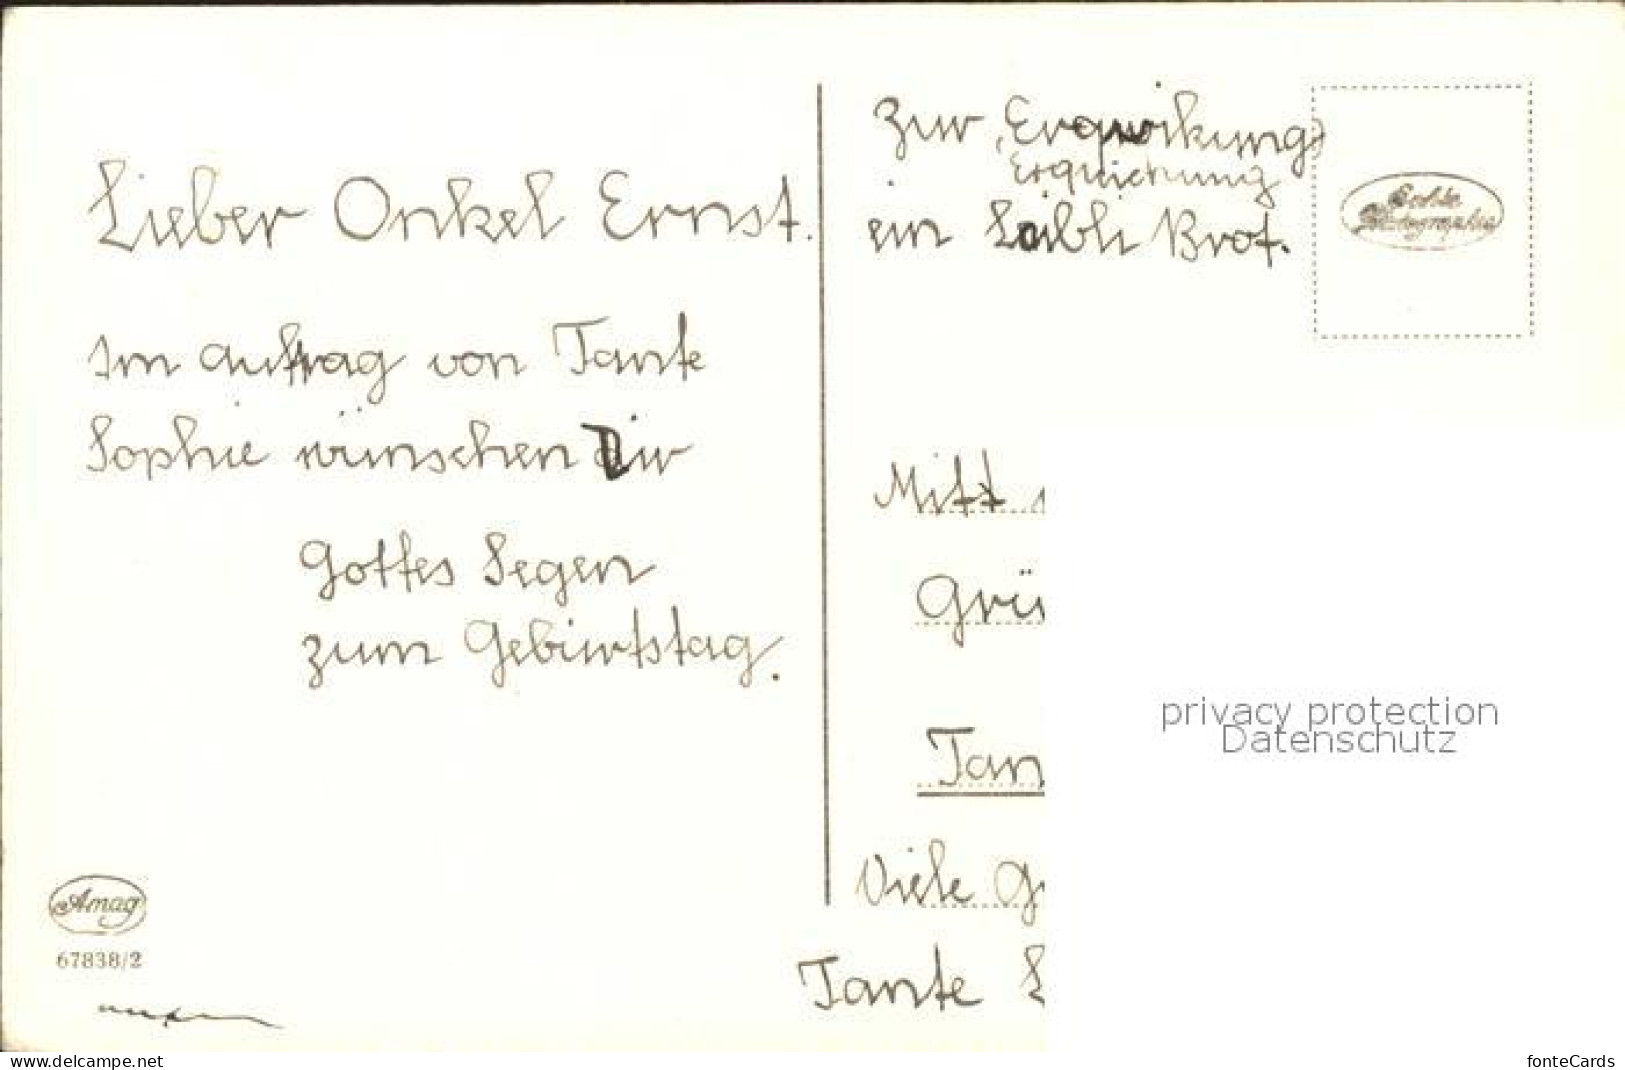 Lieber Onkel Ernst.
Im Auftrag von Tante
Sophie wünschen Dir
Gottes Segen
zum Geburtstag.
Amag
67838/2
Zur Erqwikung
Erquickung
ein Laibli Brot.
Echte
Photographie
Mitt
Grü
Tan
Viele G
Tante L
privacy protection
Datenschutz
www.delcampe.net
fonteCards